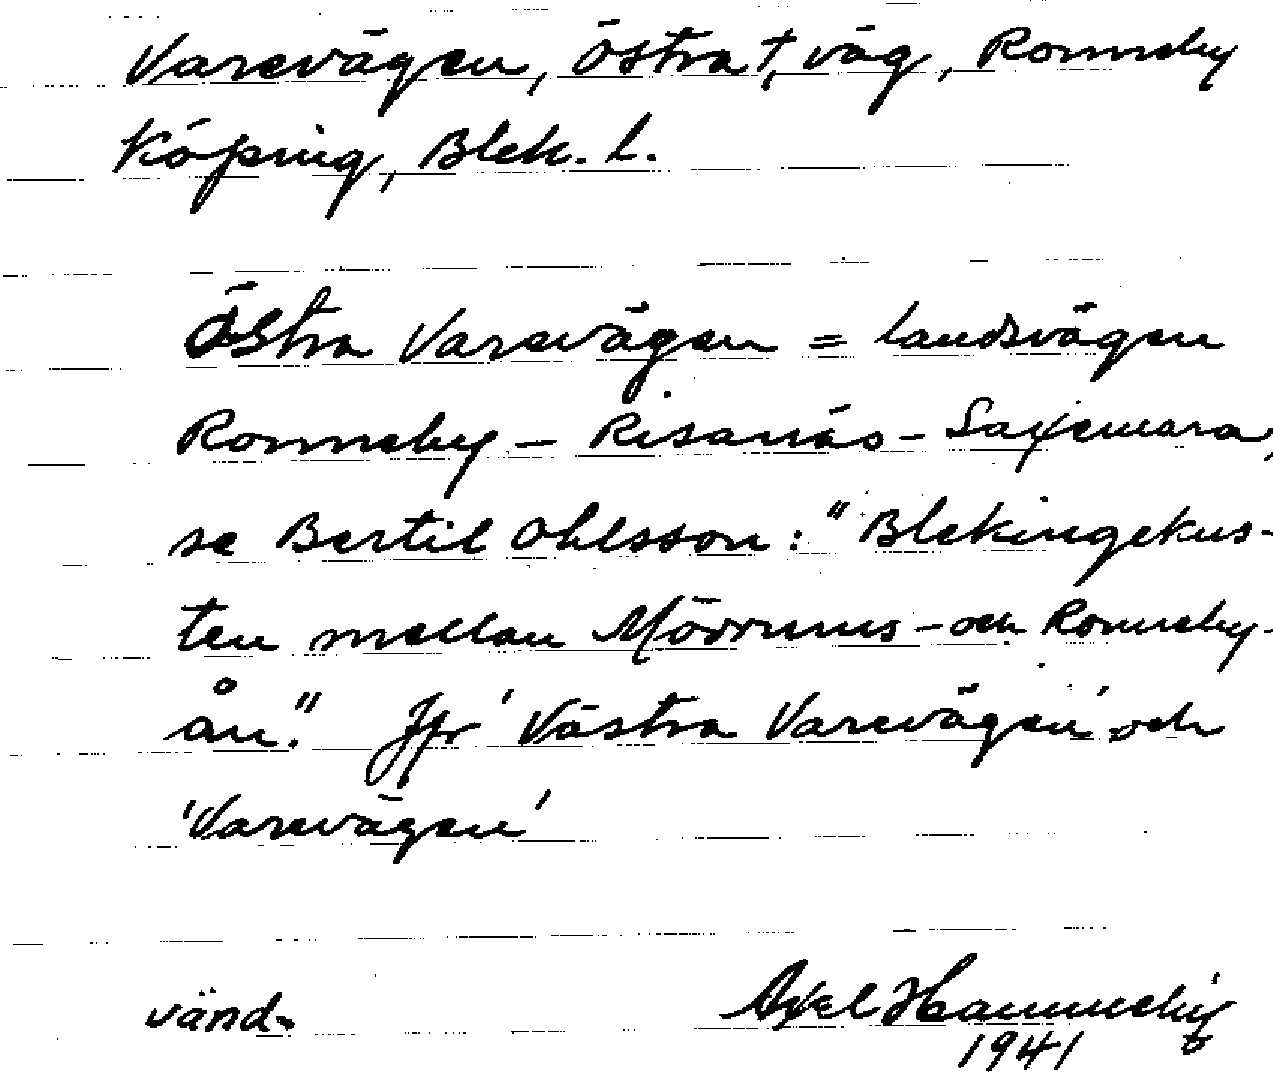 Varevägen, Östra †, väg, Ronneby
Köping, Blek. L.
Östra Varevägen = landsvägen
Ronneby – Risanäs – Saxemara,
se Bertil Ohlsson: "Blekingekus-
ten mellan Mörrums- och Ronneby-
ån." Jfr 'Västra Varevägen' och
'Varevägen'
vänd. Axel
1941